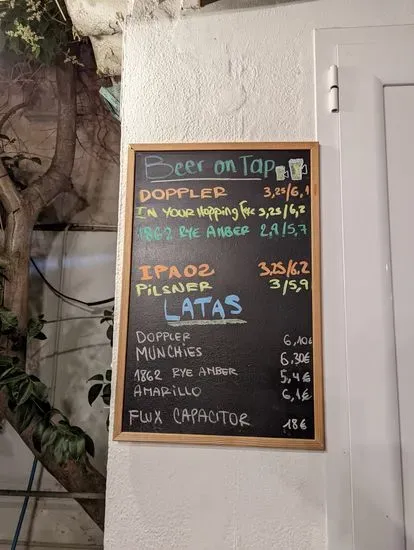 Beer on Tap
DOPPLER 3,25/6,1
IN YOUR Hopping Face 3,25/6,2
1862 RYE AMBER 2,9/5,7
IPA02 3,25/6.2
PiLSNER 3/5,9
LATAS
DOPPLER 6,10€
MUNCHIES 6,30€
1862 RYE AMBER 5,4€
AMARILLO 6,1€
FLUX CAPACITOR 18€